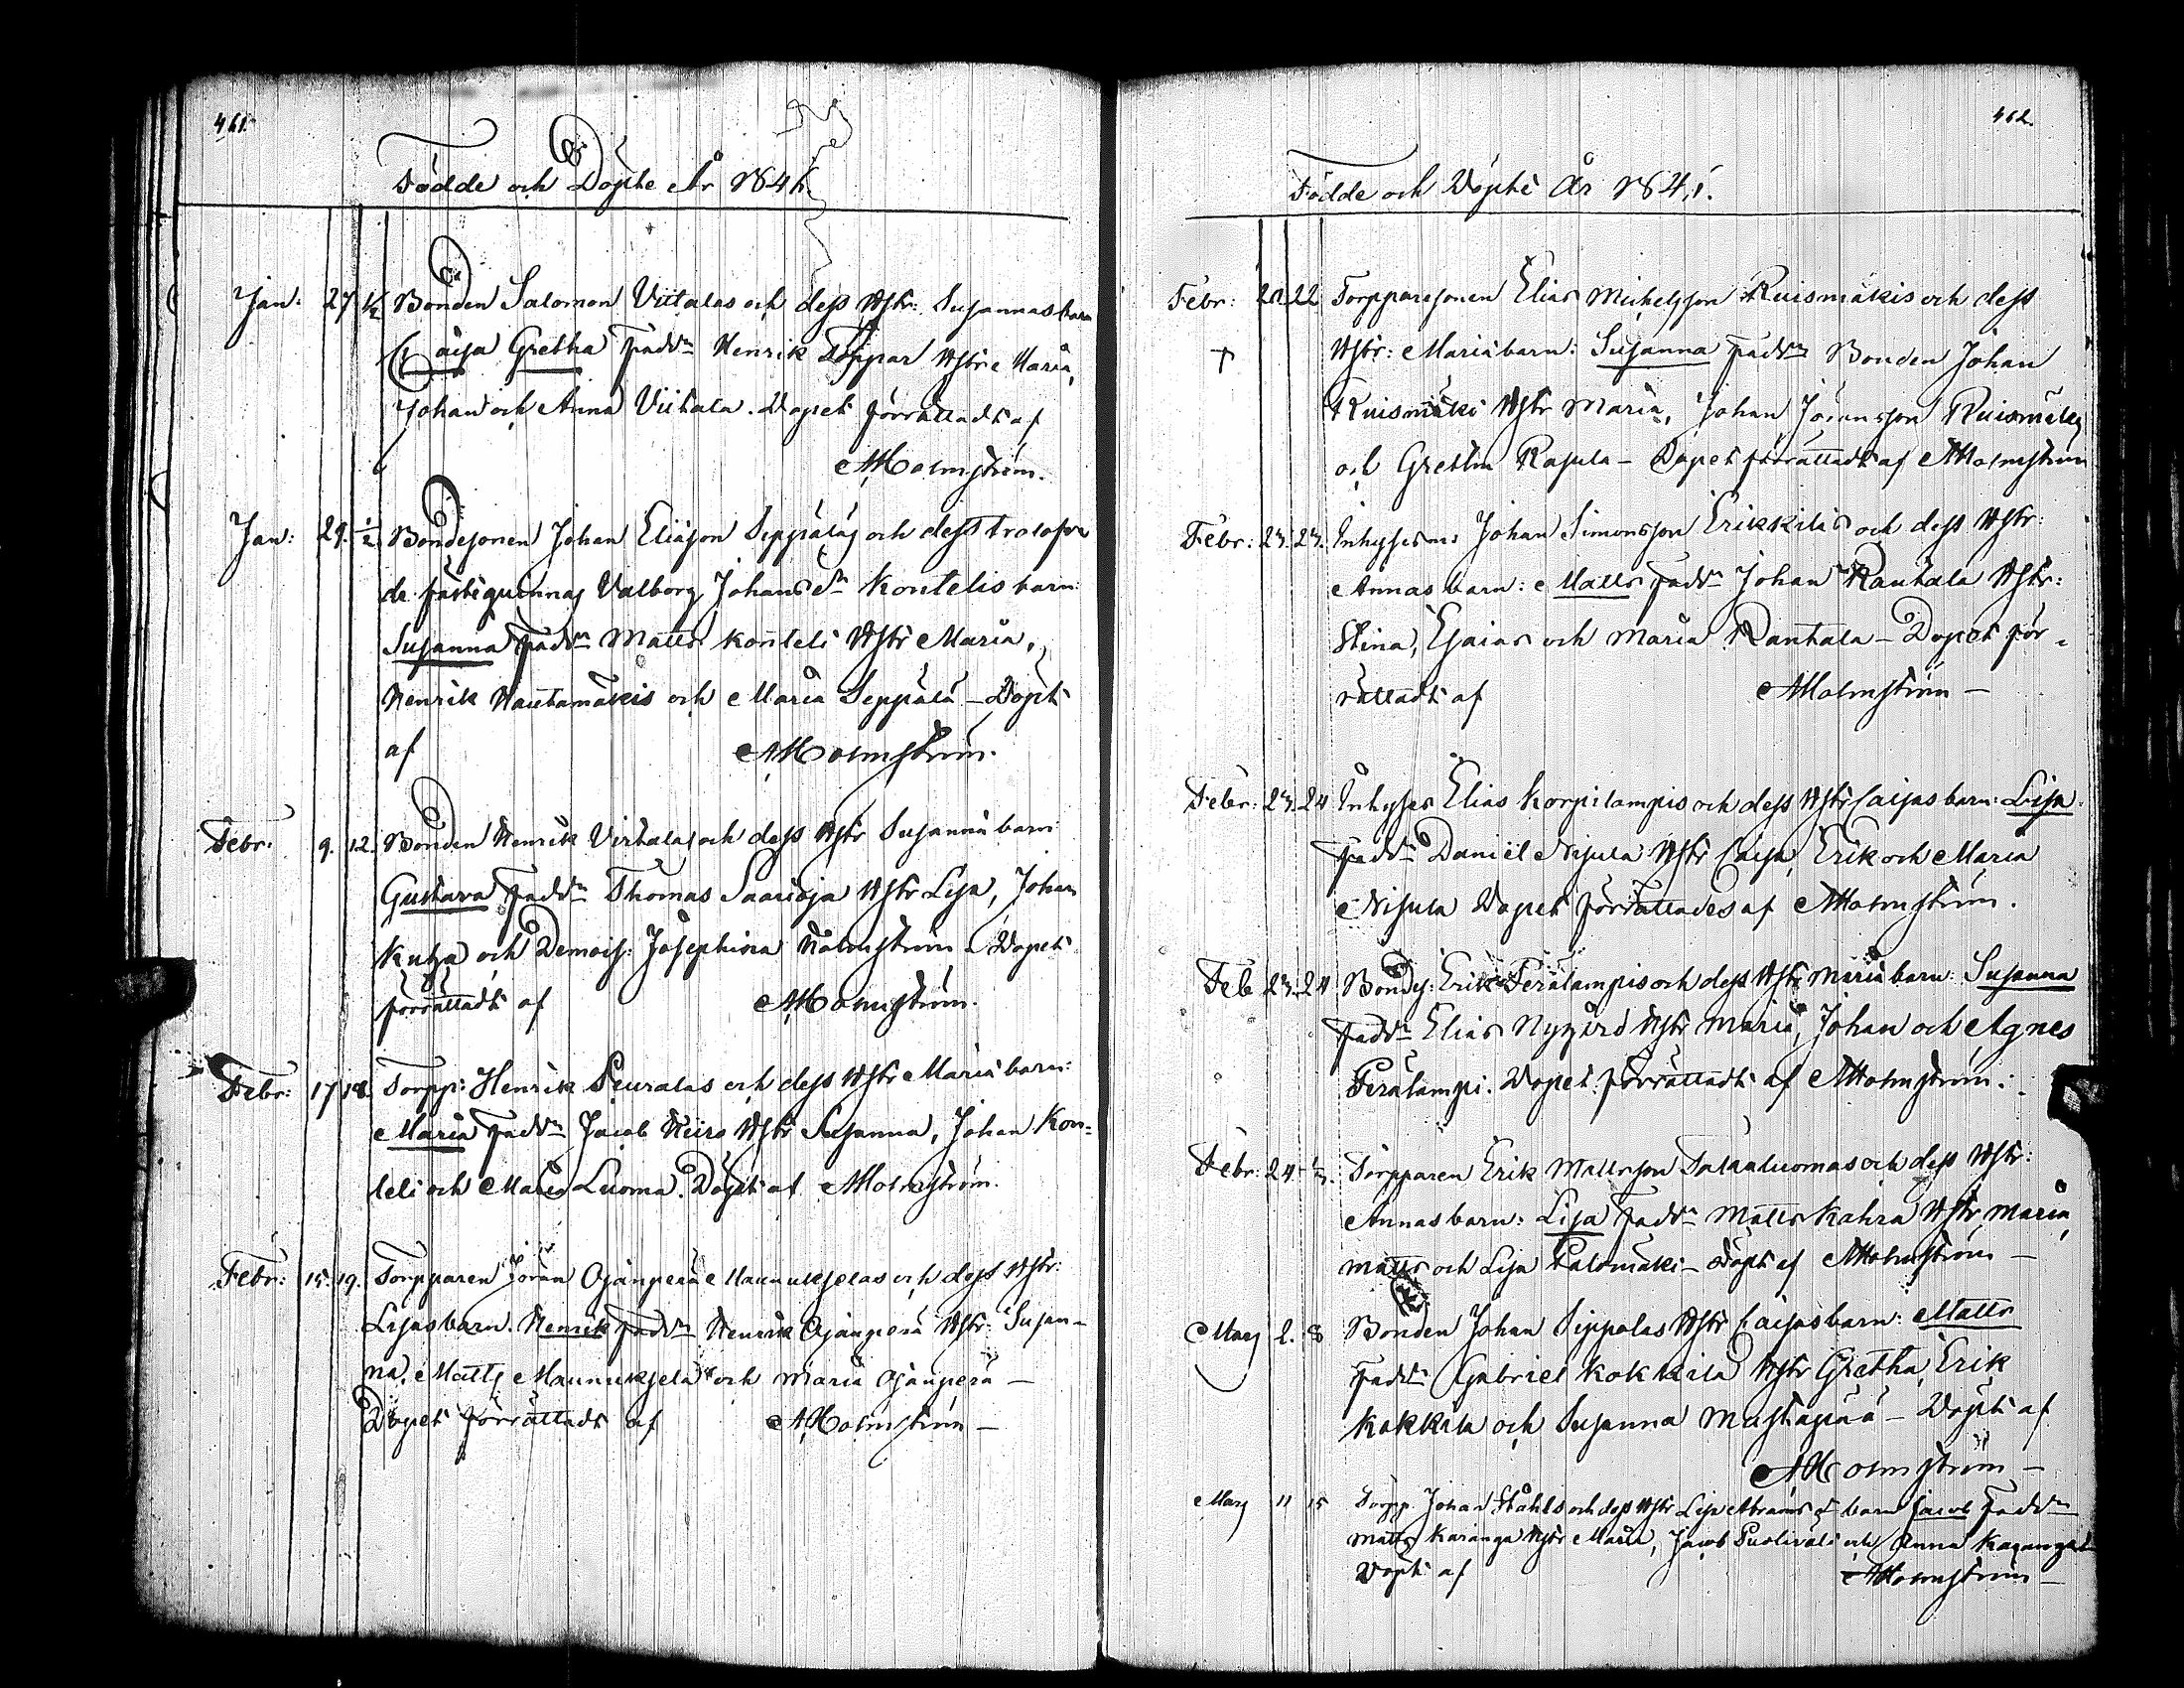 461.
Födde och Döpte År 1841.
Jan: 27 1/2 Bonden Salomon Viitalas och dess Hstr: Susannas barn
Caisa Gretha Faddr Henrik Töppar Hstr Maria,
Johan och Anna Viitala. Dopet förrättadt af
AHolmström.
Jan: 29. 1/2 Bondesonen Johan Eliason Seppäläs och dess trolofva
de fästeqvinnas Valborg Johansdr Kontelis barn:
Susanna Faddr Matts Konteli Hstr Maria,
Henrik Hautamäkis och Maria Seppälä – Döpt
af AHolmström.
Febr: 9. 12. Bonden Henrik Virtalas och dess Hstr Susannä barn
Gustava Faddr Thomas Saarioja Hstr Lisa, Johan
Kutza och Demois: Josephina Holmström – Dopet
förrättadt af AHolmström.
Febr: 17 18. Torpp: Henrik Peuralas och dess Hstr Mariä barn:
Maria Faddr Jacob Niiro Hstr Susanna, Johan Kon=
teli och Maria Luoma. Döpt af AHolmström.
Febr: 15. 19. Torpparen Jöran Ojanperä Maunukselas och dess Hstr:
Lisas barn. Henrik Faddr Henrik Ojanperä Hstr: Susan-
na, Matts Maunuksela och Maria Ojanperä –
Dopet förrättadt af AHolmström –
462.
Födde och Döpte År 1841.
Febr: 20 22 Torpparesonen Elias Michelsson Ruismäkis och dess
+ Hstr: Mariä barn: Susanna Faddr Bonden Johan
Ruismäki Hstr Maria, Johan Jöransson Ruismäki
och Gretha Rasula – Dopet förrättadt af AHolmström
Febr: 23. 23. Inhyses m: Johan Simonsson Erikkiläs och dess Hstr:
Annas barn: Matts Faddr Johan Rantala Hstr:
Stina, Esaias och Maria Rantala – Dopet för=
rättadt af AHolmström –
Febr: 23. 24 Inhyses Elias Korpilampis och dess Hstr Caisas barn: Lisa
Faddr Daniel Nisula Hstr Caisa, Erik och Maria
Nisula Dopet förrättades af AHolmström.
Feb 23. 24 Bonds: Erik Perälampis och dess Hstr Mariä barn: Susanna
Faddr Elias Nygård Hstr Maria, Johan och Agnes
Perälampi. Dopet förrättadt af AHolmström.
Febr: 24. 1/3. Torpparen Erik Mattsson Salaluomas och dess Hstr:
Annas barn: Lisa Faddr Matts Kahra Hstr Maria,
Matts och Lisa Palomäki – Döpt af AHolmström –
Mars 2. 8 Bonden Johan Sippolas Hstr Caisas barn: Matts
Faddr Gabriel Kokkila Hstr Gretha, Erik
Kokkila och Susanna Mustapää – Döpt af
AHolmström –
Mars 11 15 Torpp. Johan Ståhls och dess Hstr Lisa Abramsdr barn Jacob Faddr
Matts Karanga Hstr Maria, Jacob Puolivali och Anna Karanga
Döpt af AHolmström –